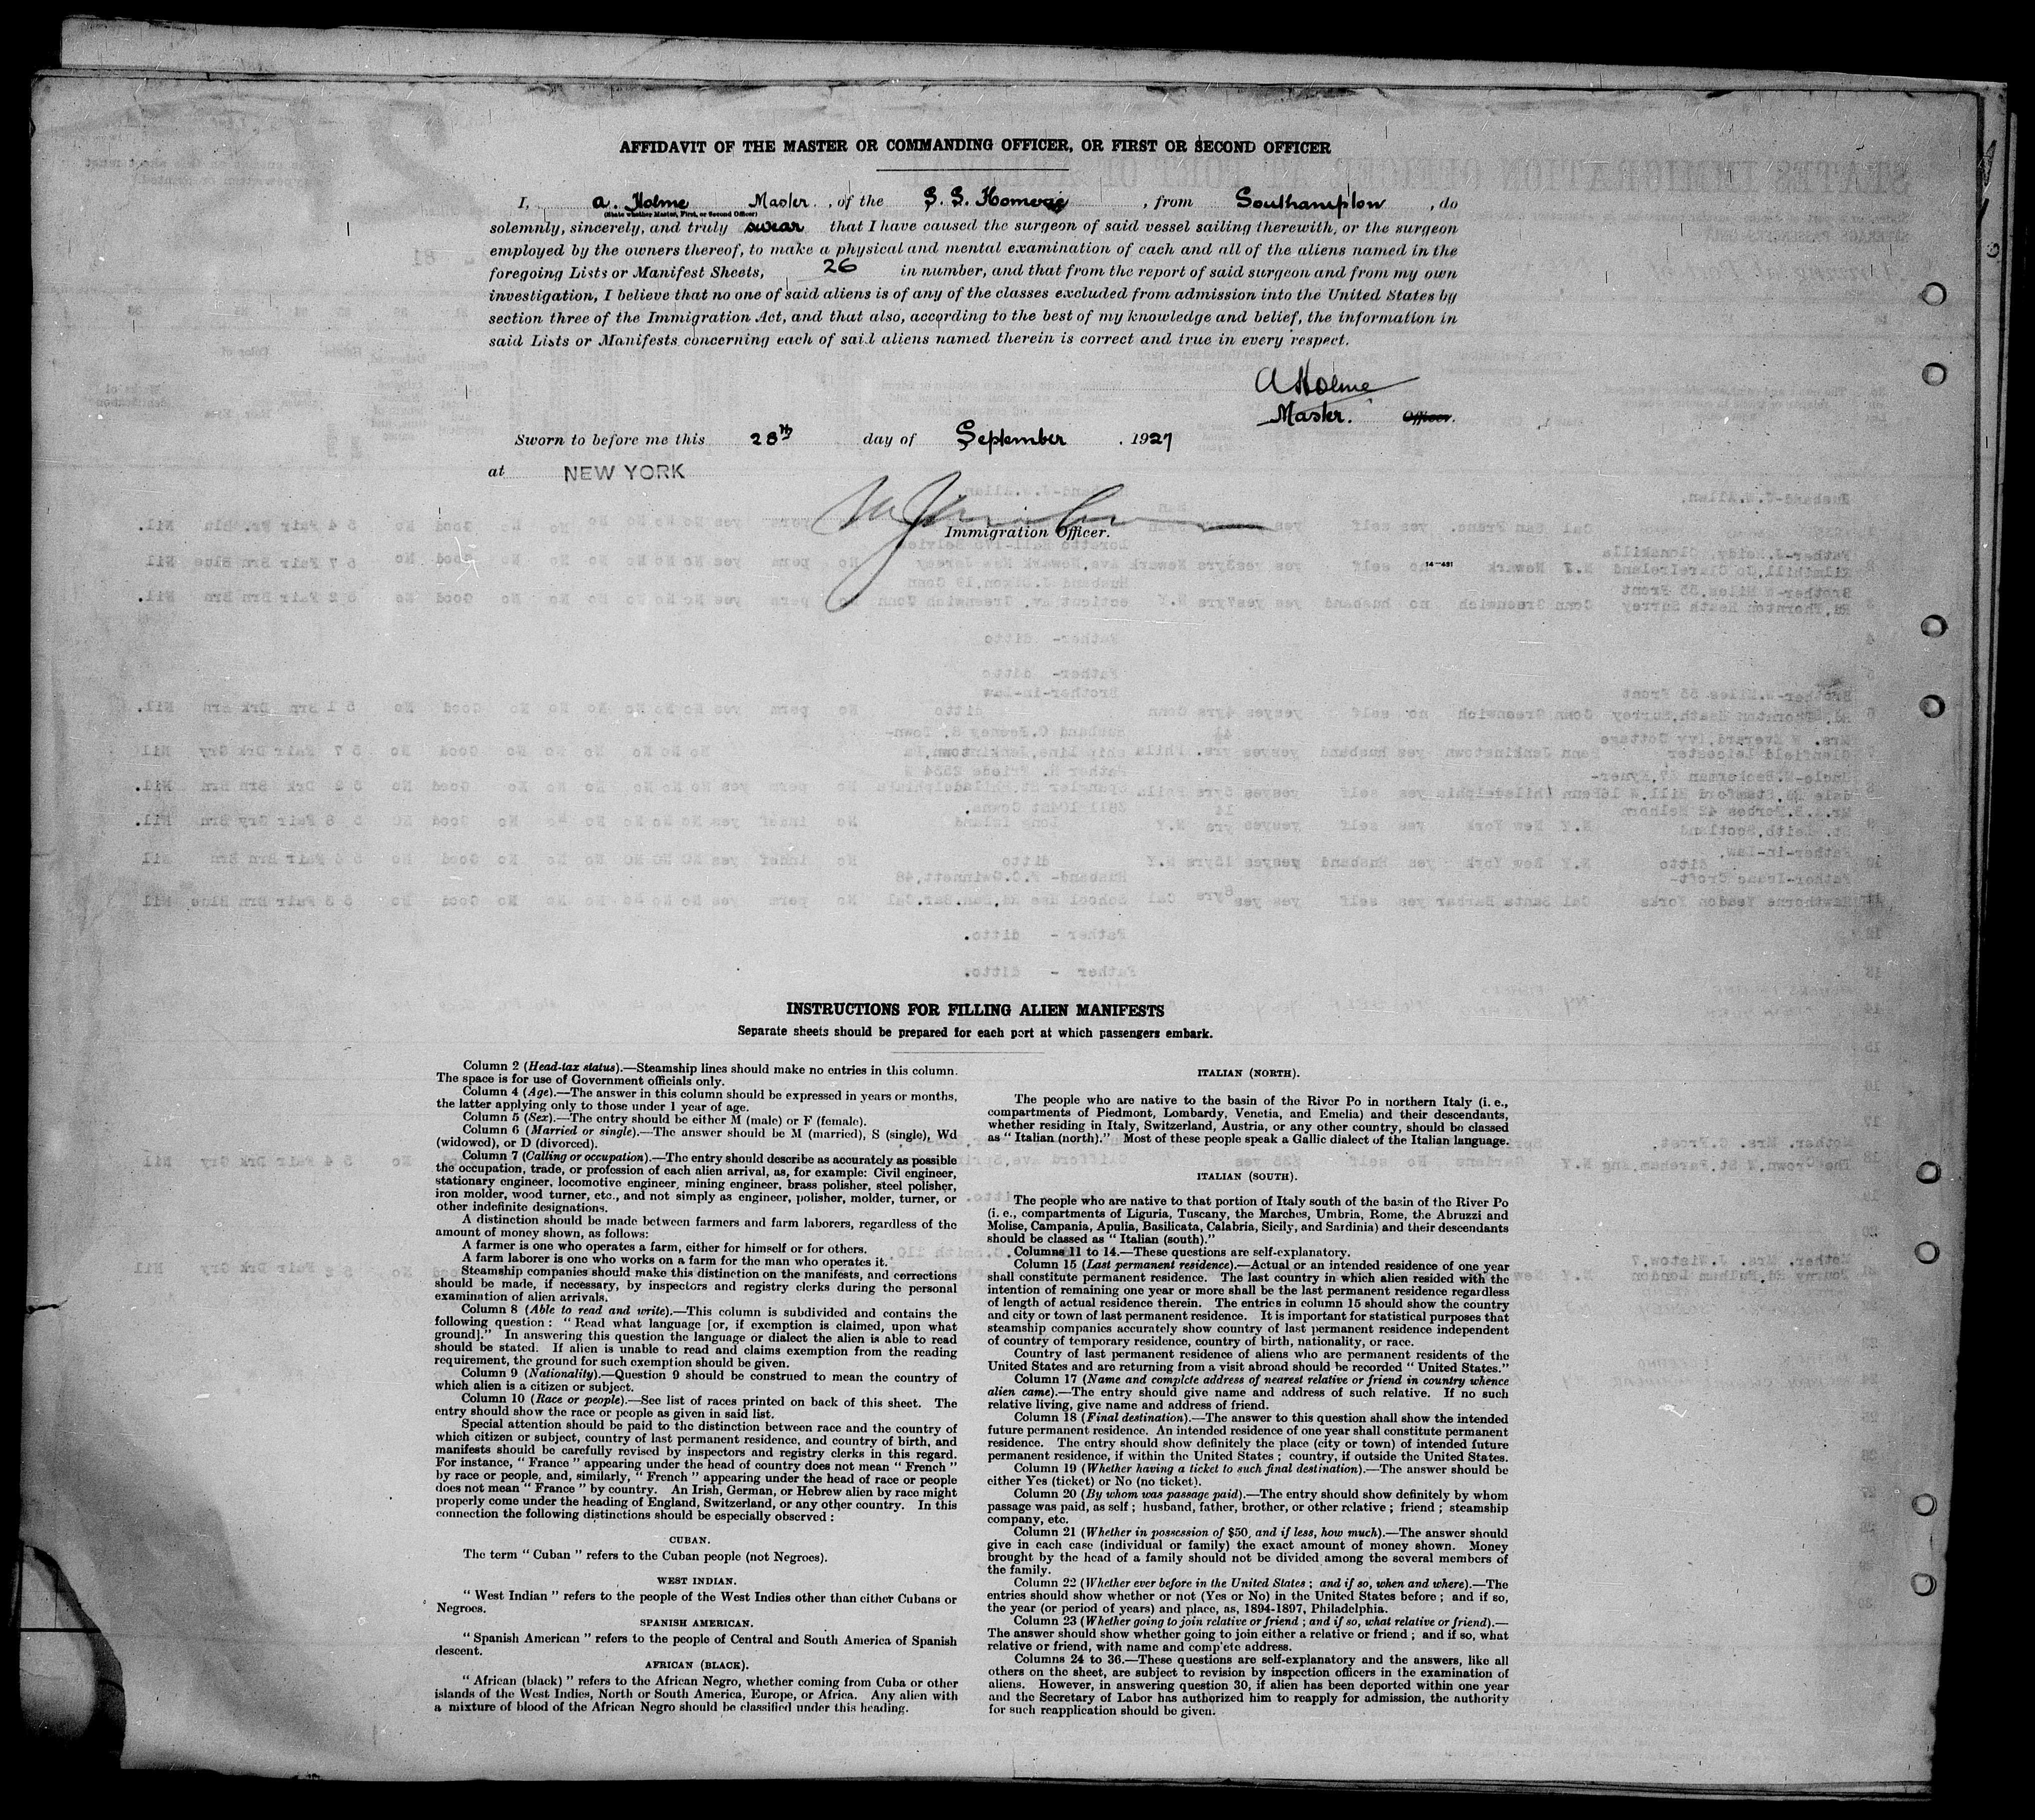 AFFIDAVIT OF THE MASTER OR COMMANDING OFFICER, OR FIRST OR SECOND OFFICER
I, A. Holme Master , of the S. S. Homeric , from Southampton , do
(State whether Master, First, or Second Officer)
solemnly, sincerely, and truly swear that I have caused the surgeon of said vessel sailing therewith, or the surgeon
employed by the owners thereof, to make a physical and mental examination of each and all of the aliens named in the
foregoing Lists or Manifest Sheets, 26 in number, and that from the report of said surgeon and from my own
investigation, I believe that no one of said aliens is of any of the classes excluded from admission into the United States by
section three of the Immigration Act, and that also, according to the best of my knowledge and belief, the information in
said Lists or Manifests concerning each of said aliens named therein is correct and true in every respect.
A Holme
Master. Officer.
Sworn to before me this 28th day of September , 1927
at NEW YORK
Immigration Officer.
14—431
INSTRUCTIONS FOR FILLING ALIEN MANIFESTS
Separate sheets should be prepared for each port at which passengers embark.
Column 2 (Head-tax status).—Steamship lines should make no entries in this column.
The space is for use of Government officials only.
Column 4 (Age).—The answer in this column should be expressed in years or months,
the latter applying only to those under 1 year of age.
Column 5 (Sex).—The entry should be either M (male) or F (female).
Column 6 (Married or single).—The answer should be M (married), S (single), Wd
(widowed), or D (divorced).
Column 7 (Calling or occupation).—The entry should describe as accurately as possible
the occupation, trade, or profession of each alien arrival, as, for example: Civil engineer,
stationary engineer, locomotive engineer, mining engineer, brass polisher, steel polisher,
iron molder, wood turner, etc., and not simply as engineer, polisher, molder, turner, or
other indefinite designations.
A distinction should be made between farmers and farm laborers, regardless of the
amount of money shown, as follows:
A farmer is one who operates a farm, either for himself or for others.
A farm laborer is one who works on a farm for the man who operates it.
Steamship companies should make this distinction on the manifests, and corrections
should be made, if necessary, by inspectors and registry clerks during the personal
examination of alien arrivals.
Column 8 (Able to read and write).—This column is subdivided and contains the
following question: “Read what language [or, if exemption is claimed, upon what
ground].” In answering this question the language or dialect the alien is able to read
should be stated. If alien is unable to read and claims exemption from the reading
requirement, the ground for such exemption should be given.
Column 9 (Nationality).—Question 9 should be construed to mean the country of
which alien is a citizen or subject.
Column 10 (Race or people).—See list of races printed on back of this sheet. The
entry should show the race or people as given in said list.
Special attention should be paid to the distinction between race and the country of
which citizen or subject, country of last permanent residence, and country of birth, and
manifests should be carefully revised by inspectors and registry clerks in this regard.
For instance, “France” appearing under the head of country does not mean “French”
by race or people, and, similarly, “French” appearing under the head of race or people
does not mean “France” by country. An Irish, German, or Hebrew alien by race might
properly come under the heading of England, Switzerland, or any other country. In this
connection the following distinctions should be especially observed:
CUBAN.
The term “Cuban” refers to the Cuban people (not Negroes).
WEST INDIAN.
“West Indian” refers to the people of the West Indies other than either Cubans or
Negroes.
SPANISH AMERICAN.
“Spanish American” refers to the people of Central and South America of Spanish
descent.
AFRICAN (BLACK).
“African (black)” refers to the African Negro, whether coming from Cuba or other
islands of the West Indies, North or South America, Europe, or Africa. Any alien with
a mixture of blood of the African Negro should be classified under this heading.
ITALIAN (NORTH).
The people who are native to the basin of the River Po in northern Italy (i. e.,
compartments of Piedmont, Lombardy, Venetia, and Emelia) and their descendants,
whether residing in Italy, Switzerland, Austria, or any other country, should be classed
as “Italian (north).” Most of these people speak a Gallic dialect of the Italian language.
ITALIAN (SOUTH).
The people who are native to that portion of Italy south of the basin of the River Po
(i. e., compartments of Liguria, Tuscany, the Marches, Umbria, Rome, the Abruzzi and
Molise, Campania, Apulia, Basilicata, Calabria, Sicily, and Sardinia) and their descendants
should be classed as “Italian (south).”
Columns 11 to 14.—These questions are self-explanatory.
Column 15 (Last permanent residence).—Actual or an intended residence of one year
shall constitute permanent residence. The last country in which alien resided with the
intention of remaining one year or more shall be the last permanent residence regardless
of length of actual residence therein. The entries in column 15 should show the country
and city or town of last permanent residence. It is important for statistical purposes that
steamship companies accurately show country of last permanent residence independent
of country of temporary residence, country of birth, nationality, or race.
Country of last permanent residence of aliens who are permanent residents of the
United States and are returning from a visit abroad should be recorded “United States.”
Column 17 (Name and complete address of nearest relative or friend in country whence
alien came).—The entry should give name and address of such relative. If no such
relative living, give name and address of friend.
Column 18 (Final destination).—The answer to this question shall show the intended
future permanent residence. An intended residence of one year shall constitute permanent
residence. The entry should show definitely the place (city or town) of intended future
permanent residence, if within the United States; country, if outside the United States.
Column 19 (Whether having a ticket to such final destination).—The answer should be
either Yes (ticket) or No (no ticket).
Column 20 (By whom was passage paid).—The entry should show definitely by whom
passage was paid, as self; husband, father, brother, or other relative; friend; steamship
company, etc.
Column 21 (Whether in possession of $50, and if less, how much).—The answer should
give in each case (individual or family) the exact amount of money shown. Money
brought by the head of a family should not be divided among the several members of
the family.
Column 22 (Whether ever before in the United States; and if so, when and where).—The
entries should show whether or not (Yes or No) in the United States before; and if so,
the year (or period of years) and place, as, 1894-1897, Philadelphia.
Column 23 (Whether going to join relative or friend; and if so, what relative or friend).—
The answer should show whether going to join either a relative or friend; and if so, what
relative or friend, with name and complete address.
Columns 24 to 36.—These questions are self-explanatory and the answers, like all
others on the sheet, are subject to revision by inspection officers in the examination of
aliens. However, in answering question 30, if alien has been deported within one year
and the Secretary of Labor has authorized him to reapply for admission, the authority
for such reapplication should be given.